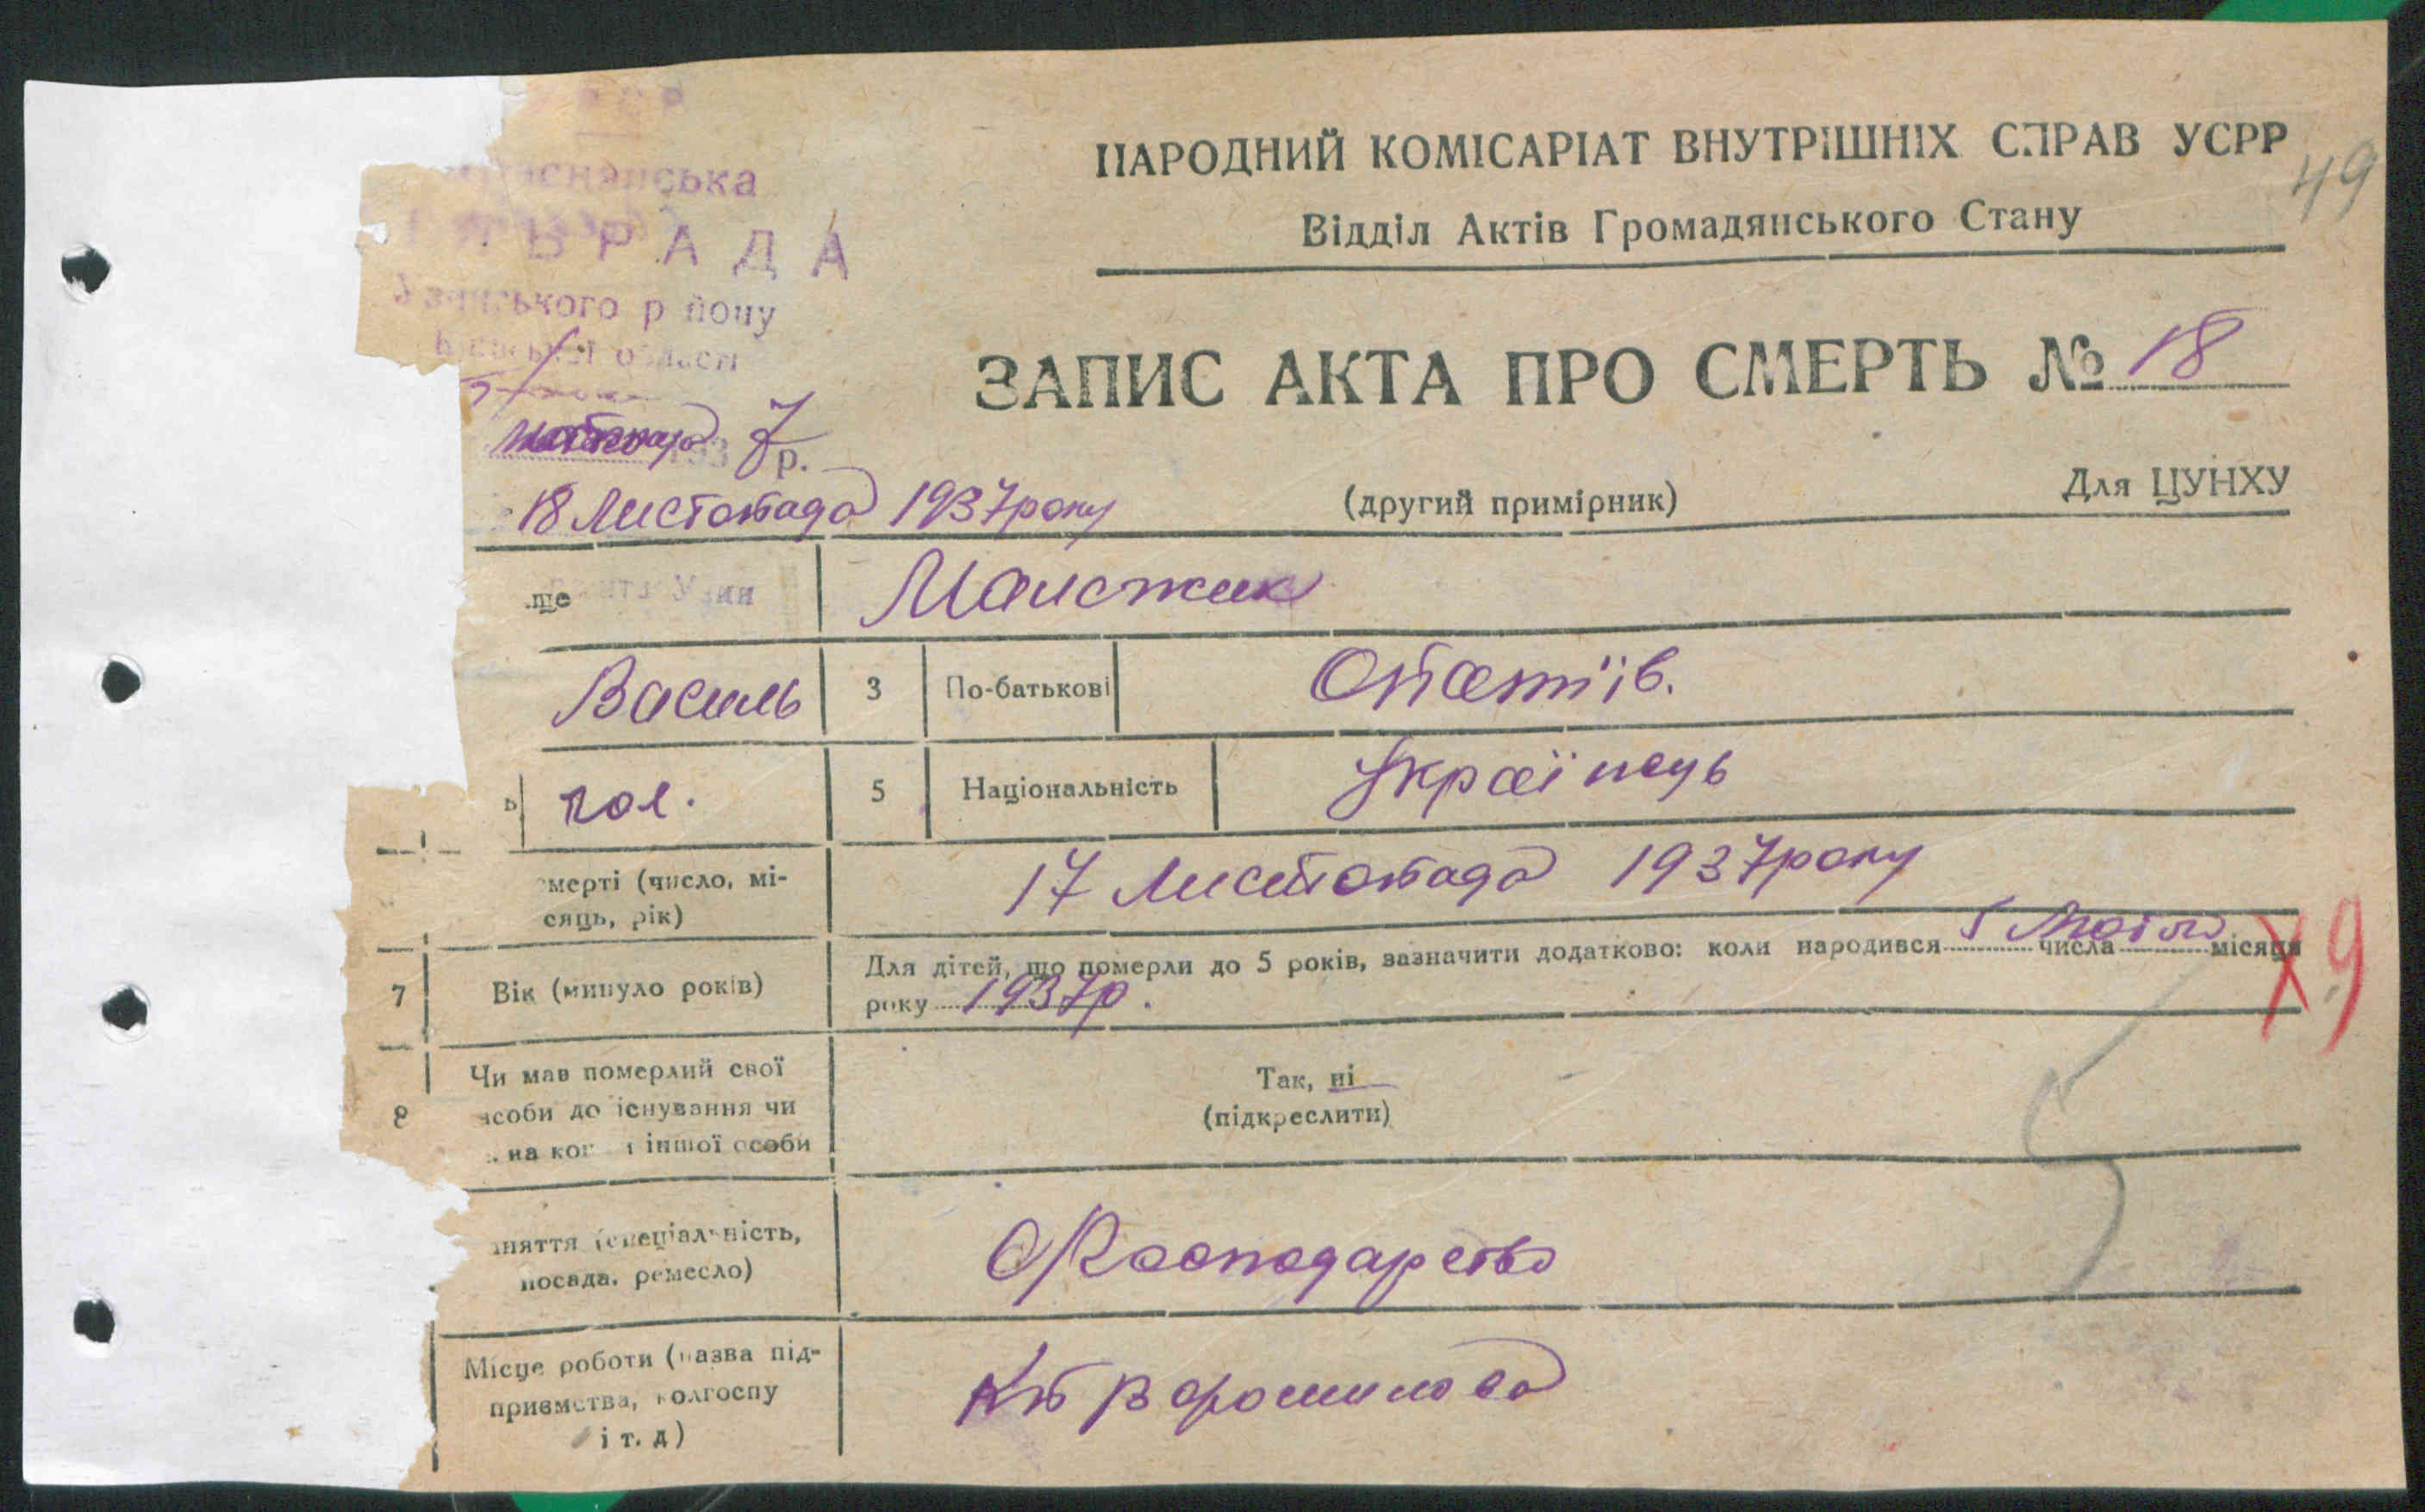 НАРОДНИЙ КОМІСАРІАТ ВНУТРІШНІХ СПРАВ УСРР
49
Відділ Актів Громадянського Стану
РАДА
ЗАПИС АКТА ПРО СМЕРТЬ № 18
1937р.
18 Листопада 1937 року
(другий примірник)
Для ЦУНХУ
ще
Василь
3 По-батькові Опатіїв.
чол.
5 Національність Українець
мерті (число, мі-
сяць, рік)
17 Листопада 1937 року
7 Вік (минуло років)
Для дітей, що померли до 5 років, зазначити додатково: коли народився 5 числа Лютого місяця
року 1937р.
Х 9
8 Чи мав померлий свої
асоби до існування чи
на ко іншої особи
Так, ні
(підкреслити)
няття (спеціальність,
посада, ремесло)
Господарство
Місце роботи (назва під-
приємства, колгоспу
і т. д)
Ворошилова